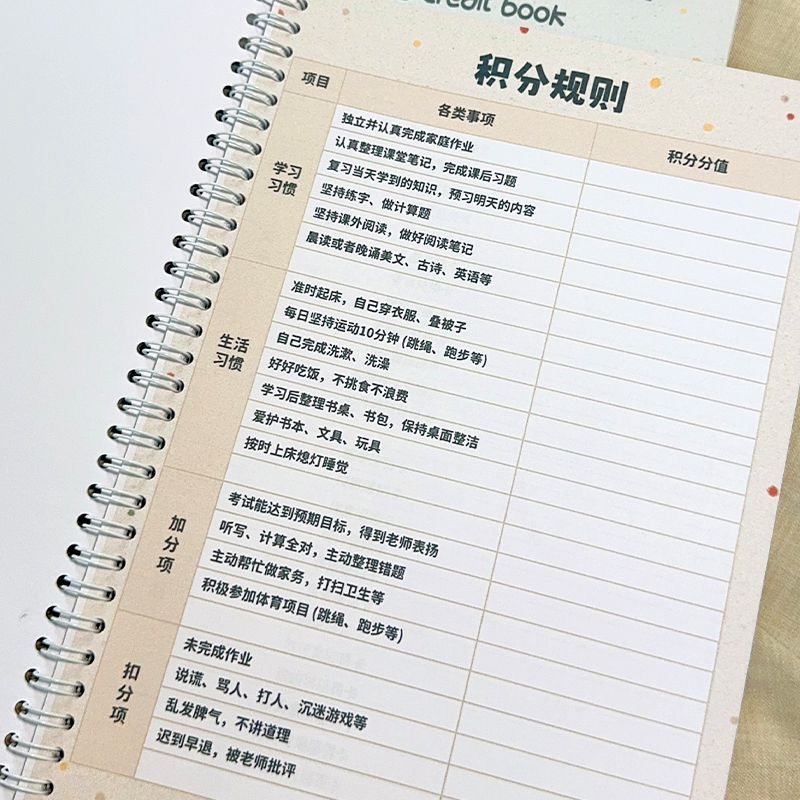 credit book
积分规则
项目
各类事项
积分分值
学习
习惯
独立并认真完成家庭作业
认真整理课堂笔记，完成课后习题
复习当天学到的知识，预习明天的内容
坚持练字、做计算题
坚持课外阅读，做好阅读笔记
晨读或者晚诵美文、古诗、英语等
生活
习惯
准时起床，自己穿衣服、叠被子
每日坚持运动10分钟 (跳绳、跑步等)
自己完成洗漱、洗澡
好好吃饭，不挑食不浪费
学习后整理书桌、书包，保持桌面整洁
爱护书本、文具、玩具
按时上床熄灯睡觉
加
分
项
考试能达到预期目标，得到老师表扬
听写、计算全对，主动整理错题
主动帮忙做家务，打扫卫生等
积极参加体育项目 (跳绳、跑步等)
扣
分
项
未完成作业
说谎、骂人、打人、沉迷游戏等
乱发脾气，不讲道理
迟到早退，被老师批评